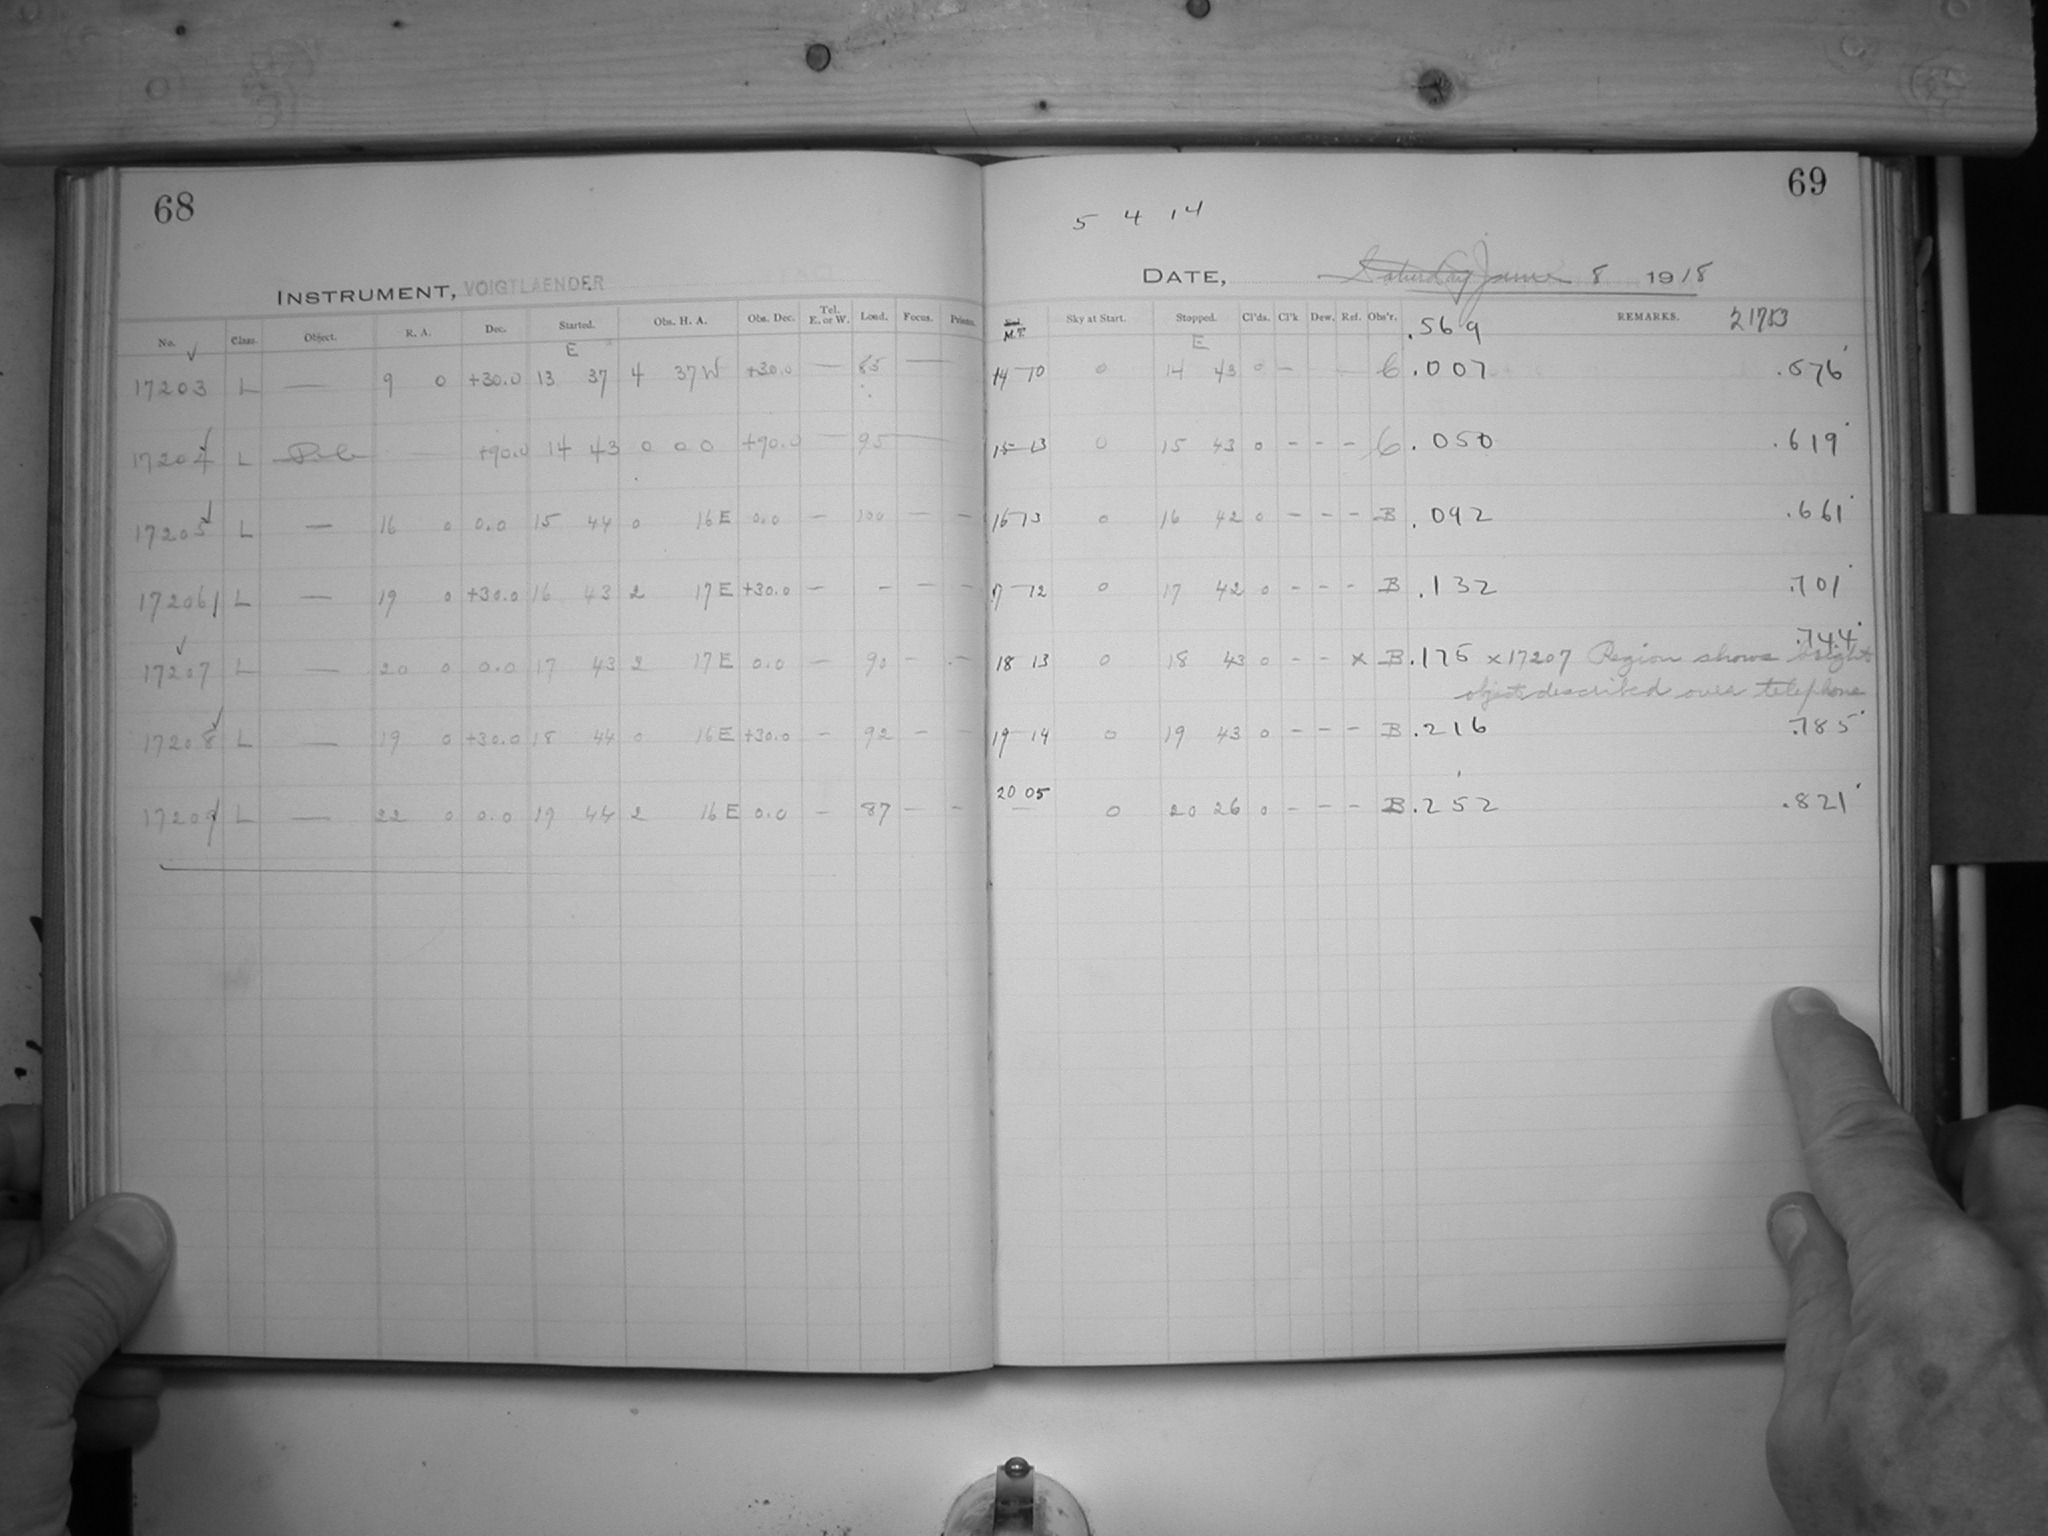 68
INSTRUMENT, VOIGTLAENDER
No. Class. Object. R. A. Dec. Started. Obs. H. A. Obs. Dec. Tel. E. or W. Load. Focus.
E
17203 L — 9 0 +30.0 13 37 4 37 W +30.0 — 85 —
17204 L +90.0 14 43 0 0 0 +90.0 — 95 —
17205 L — 16 0 0.0 15 44 0 16 E 0.0 — 100 — —
17206 L — 19 0 +30.0 16 43 2 17 E +30.0 — — — —
17207 L — 20 0 0.0 17 43 2 17 E 0.0 — 90 — —
17208 L — 19 0 +30.0 18 44 0 16 E +30.0 — 92 — —
17209 L — 22 0 0.0 19 44 2 16 E 0.0 — 87 — —
69
5 4 14
DATE, Saturday June 8 1918
M.T. Sky at Start. Stopped. Cl'ds. Cl'k Dew. Ref. Obs'r. .569 REMARKS. 21753
E
14 10 0 14 43 0 — 6 .007 .576
15 13 0 15 43 0 — — — 6 .050 .619
16 13 0 16 42 0 — — — B .092 .661
17 12 0 17 42 0 — — — B .132 .701
.744
18 13 0 18 43 0 — — x B .175 x 17207 Region shows bright
object described over telephone
19 14 0 19 43 0 — — — B .216 .785
20 05
0 20 26 0 — — — B .252 .821